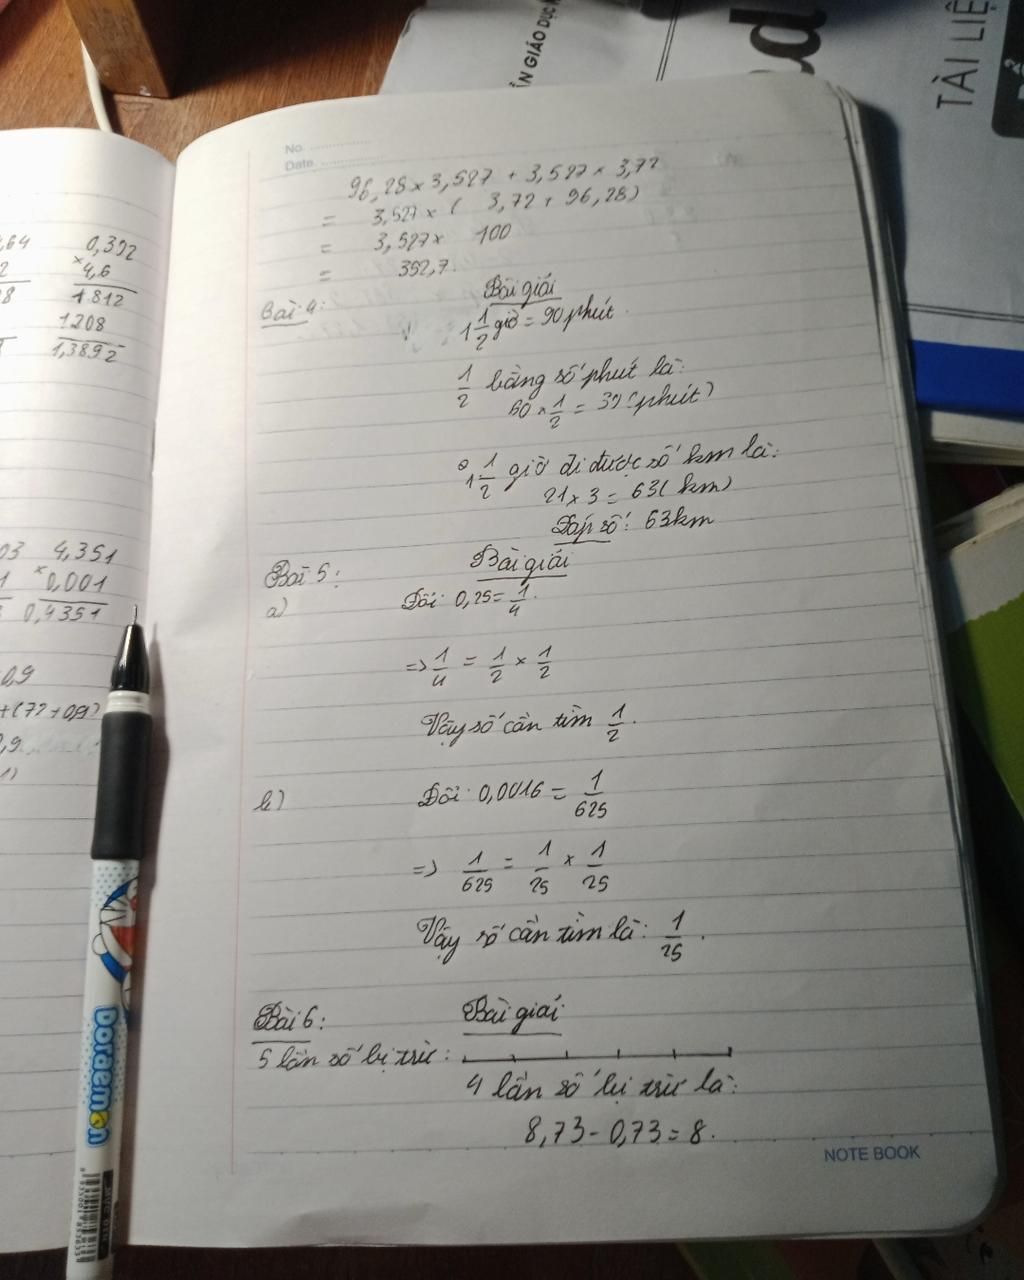 ÂN GIÁO DỤC
TÀI LIỆ
No.
Date.
,64
2
0,392
× 4,6
1812
1208
1,3892
03
4,351
× 0,001
0,4351
0,9
+(72+0,9)
96,28 × 3,527 + 3,527 × 3,72
= 3,527 × ( 3,72 + 96,28)
= 3,527 × 100
= 352,7.
Bài 4:
Bài giải
1 1/2 giờ = 90 phút.
1/2 bằng số phút là:
60 × 1/2 = 30 (phút)
1 1/2 giờ đi được số km là:
21 × 3 = 63 ( km)
Đáp số: 63km
Bài 5:
Bài giải
a) Đổi 0,25 = 1/4.
=> 1/4 = 1/2 × 1/2
Vậy số cần tìm 1/2.
b) Đổi 0,0016 = 1/625
=> 1/625 = 1/25 × 1/25
Vậy số cần tìm là: 1/25.
Bài 6:
Bài giải
5 lần số bị trừ:
4 lần số bị trừ là:
8,73 - 0,73 = 8.
NOTE BOOK
DORaemon